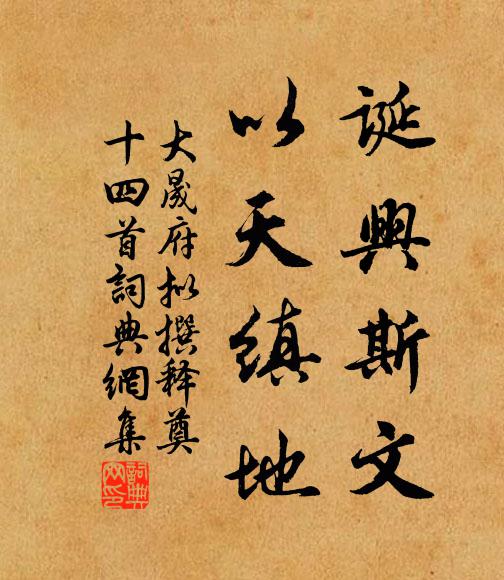 誕興斯文
以天縝地
大晟府拟撰释奠
十四首詞典網集
詞典
网印